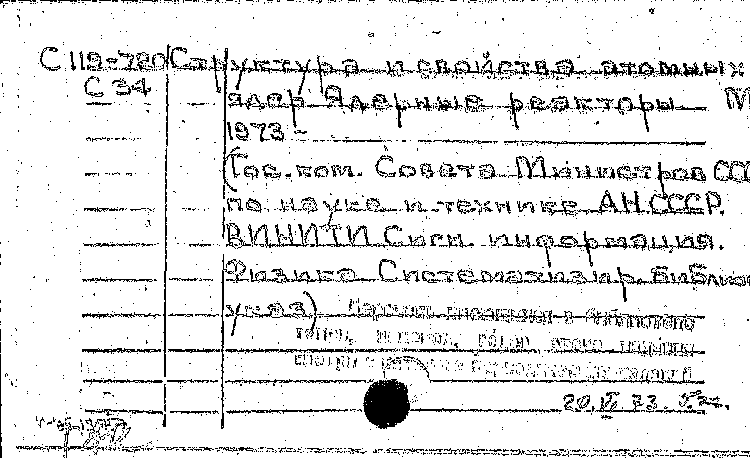 С 119-780 Структура и свойства атомных
С 34 ядер Ядерные реакторы М
1973 -
(Гос. ком. Совета Министров ССС
по науке и технике АН.СССР.
ВИНИТИ Сигн. информация.
Физика Систематизир. библио
указ)
20. 73.